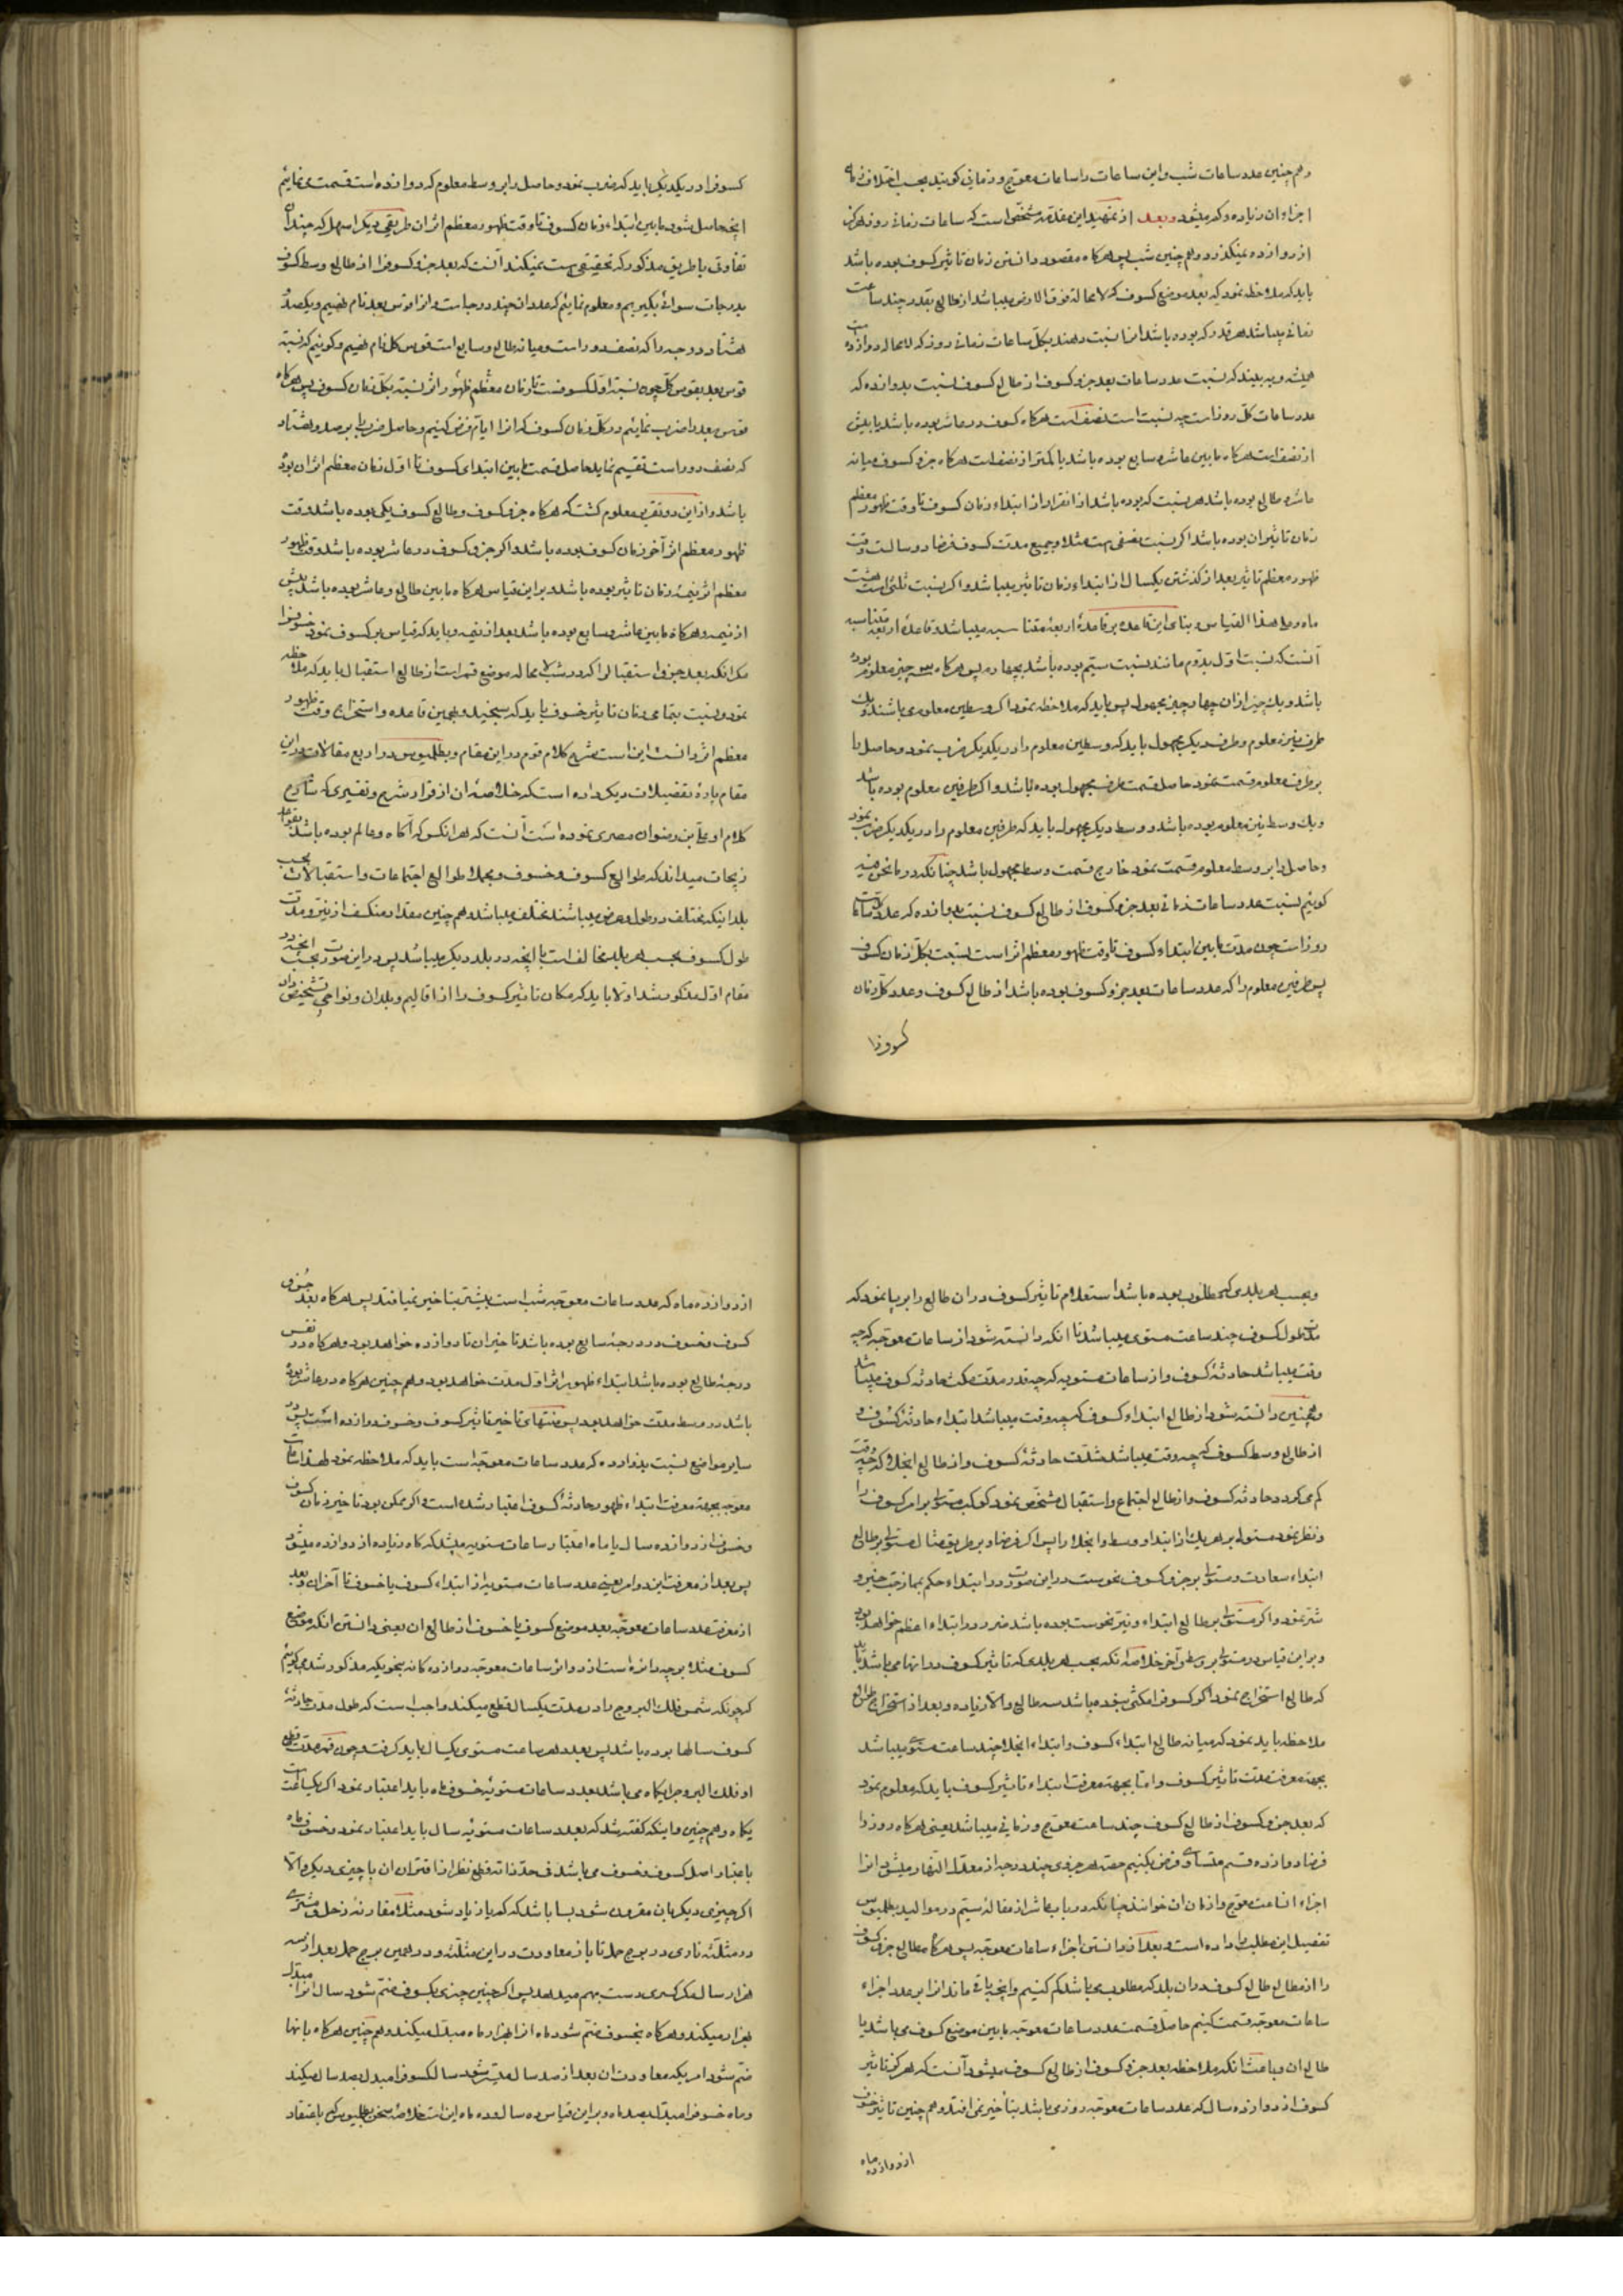 و هم چنین عدد ساعات شب و این ساعات را ساعات معوج و زمانی کویند بحسب اختلاف
اجزاء ان زیاده و کم میشود و بعد از تمهید این مقدمه مشخص است که ساعات زمانی روز هرکز
از دوازده نمیکذرد و هم چنین شب پس هرکاه مقصود دانستن زمان تاثیر کسوف بوده باشد
باید که ملاحظه نمود که بعد موضع کسوف که لا محاله فوق الارض میباشد از طالع بقدر چند ساعت
زمانی میباشد هر قدر که بوده باشد انرا نسبت دهند بکل ساعات زمانی روز که لا محاله دوازده
همیشه و به بیند که نسبت عدد ساعات بعد جزو کسوف از طالع کسوف نسبت بدوازده که
عدد ساعات کل روز است چه نسبت است نصف است هرکاه کسوف در عاشر بوده باشد یا بیش
از نصف است هرکاه مابین عاشر و سابع بوده باشد یا کمتر از نصف است هرکاه جزو کسوف میانه
عاشر و طالع بوده باشد هر نسبت که بوده باشد از انقرار از ابتداء زمان کسوف تا وقت ظهور معظم
زمان تاثیر ان بوده باشد اکر نسبت نصفی است مثلا و جمیع مدت کسوف فرضا دو سالست وقت
ظهور معظم تاثیر بعد از کذشتن یکسال از ابتداء زمان تاثیر میباشد و اکر نسبت ثلثی است هشت
ماه و علی هذا القیاس و بنای این قاعده بر قاعدهٔ اربعه متناسبه میباشد و قاعدهٔ اربعه متناسبه
آنست که نسبت اول بدوم مانند نسبت سیم بوده باشد بچهارم پس هرکاه سه چیز معلوم بوده
باشد و یک چیز از ان چهار چیز مجهول پس باید که ملاحظه نمود اکر وسطین معلوم می باشند و یک
طرف نیز معلوم و طرف دیکر مجهول باید که وسطین معلوم را در یکدیکر ضرب نمود و حاصل را
بر طرف معلوم قسمت نمود حاصل قسمت طرف مجهول بوده باشد و اکر طرفین معلوم بوده باشد
و یک وسط نیز معلوم بوده باشد و وسط دیکر مجهول باید که طرفین معلوم را در یکدیکر ضرب نمود
و حاصل را بر وسط معلوم قسمت نمود خارج قسمت وسط مجهول باشد چنانکه در ما نحن فیه
کوئیم نسبت عدد ساعات زمانی بعد جزو کسوف از طالع کسوف نسبت بدوازده که عدد ساعات
روز است چون مدت مابین ابتداء کسوف تا وقت ظهور معظم اثر است نسبت بکل زمان کسوف
پس طرفین معلوم را که عدد ساعات بعد جزو کسوف بوده باشد از طالع کسوف و عدد کل زمان
کسوف را
کسوف را در یکدیکر باید که ضرب نمود و حاصل را بر وسط معلوم که دوازده است قسمت می نمائیم
انچه حاصل شود مابین ابتداء زمان کسوف تا وقت ظهور معظم اثر ان طریقی دیکر اسهل که چندان
تفاوتی با طریق مذکور که تحقیقی است نمیکند آنست که بعد جزو کسوف را از طالع وسط کسوف
بدرجات سوائی بکیریم و معلوم نمائیم که عدد ان چند درجه است و انرا قوس بعد نام نهیم و یکصد و
هشتاد درجه را که نصف دور است و میانه طالع و سابع است قوس کل نام نهیم و کوئیم که نسبت
قوس بعد بقوس کل چون نسبت اول کسوفست تا زمان معظم ظهور اثر نسبت بکل زمان کسوف پس هرکاه
قوس بعد را ضرب نمائیم در کل زمان کسوف که انرا ایام فرض کنیم و حاصل ضرب را بر صد و هشتاد
که نصف دور است تقسیم نماید حاصل قسمت مابین ابتدای کسوف تا اول زمان معظم اثر ان بوده
باشد و از این دو تقریر معلوم کشت که هرکاه جزو کسوف و طالع کسوف یکی بوده باشد وقت
ظهور معظم اثر آخر زمان کسوف بوده باشد و اکر جزو کسوف در عاشر بوده باشد وقت ظهور
معظم اثر نیمهٔ زمان تاثیر بوده باشد و بر این قیاس هرکاه مابین طالع و عاشر بوده باشد پیش
از نیمه و هرکاه مابین عاشر و سابع بوده باشد بعد از نیمه و باید که قیاس بر کسوف نمود خسوف را
مکر انکه بعد جزو استقبال را که در شب لا محاله موضع قمر است از طالع استقبال باید که ملاحظه
نمود و نسبت بتمامی زمان تاثیر خسوف باید که سنجید و بهمین قاعده و استخراج وقت ظهور
معظم اثر دانست این است شرح کلام قوم در این مقام و بطلمیوس در اربع مقالات در این
مقام پارهٔ تفضیلات دیکر داده است که خلاصهٔ ان از قرار شرح و تفسیری که شارح
کلام او علی بن رضوان مصری نموده است آنست که هر انکس که آکاه و عالم بوده باشد بقواعد
زیجات میداند که طوالع کسوف و خسوف و بجملا طوالع اجتماعات و استقبالات بحسب
بلدانیکه مختلف در طول و عرض میباشند مختلف میباشد و هم چنین مقدار منکسف از نیّر و مدت
طول کسوف بحسب هر بلد مخالف است با انچه در بلد دیکر میباشد پس در این صورت بحسب انچه در
مقام اول مذکور شد اولا باید که مکان تاثیر کسوف را از اقالیم و بلدان و نواحی تشخیص داد
و بحسب هر بلدی که مطلوب بوده باشد استعلام تاثیر کسوف در ان طالع را بر پا نمود که
مدت طول کسوف چند ساعت مستوی میباشد تا انکه دانسته شود از ساعات معوجه که چه
وقت میباشد حادثهٔ کسوف و از ساعات مستویه که چه قدر مدت مکث حادثه کسوف میباشد
و همچنین دانسته شود از طالع ابتداء کسوف که چه وقت میباشد ابتداء حادثهٔ کسوف و
از طالع وسط کسوف که چه وقت میباشد شدت حادثهٔ کسوف و از طالع انجلا که چه وقت
کم می کردد حادثه کسوف و از طالع اجتماع و استقبال مشخص نمود کوکب مستولی بر امر کسوف را
و نظر نمود مستولی بر هر یک از ابتداء و وسط و انجلا را پس اکر فرضا و بر طریق مثال مستولی بر طالع
ابتداء سعادت و مستولی بر جزو کسوف نحوست در این صورت در ابتداء حکم بممازجت خیر و
شر نمود و اکر مستولی بر طالع ابتداء و نیر نحوست بوده باشد ضرر در ابتداء اعظم خواهد بود
و بر این قیاس در مستولی بر وسط و آخر خلاصه انکه بحسب هر بلدی که تاثیر کسوف در انها می باشد باید
که طالع استخراج نمود اکر کسوف را مکثی بوده باشد سه طالع والا زیاده و بعد از استخراج طوالع
ملاحظه باید نمود که میانه طالع ابتداء کسوف و ابتداء انجلا چند ساعت مستوی میباشد
بجهة معرفت مدت تاثیر کسوف و اما بجهة معرفت ابتداء تاثیر کسوف باید که معلوم نمود
که بعد جزو کسوف از طالع کسوف چند ساعت معوج و زمانی میباشد یعنی هرکاه روز را
فرضا دوازده قسم متساوی فرض بکنیم حصه هر جزوی چند درجه از معدل النهار میشود انرا
اجزاء ساعت معوج و ازمان ان خوانند چنانکه در باب عاشر از مقالهٔ سیّم در موالید بطلمیوس
تفصیل این مطلب را داده است و بعد از دانستن اجزاء ساعات معوجه پس هرکاه مطالع جزو کسوف
را از مطالع طالع کسوف در ان بلد که مطلوب می باشد کم کنیم و انچه باقی ماند انرا بر عدد اجزاء
ساعات معوجه قسمت کنیم حاصل قسمت عدد ساعات معوجه مابین موضع کسوف می باشد یا
طالع ان و باعث انکه ملاحظه بعد جزو کسوف از طالع کسوف میشود آنست که هرکز تاثیر
کسوف از دوازده سال که عدد ساعات معوجه روزی باشد بتاخیر نمی افتد و هم چنین تاثیر خسوف
از دوازده ماه
از دوازده ماه که عدد ساعات معوجه شب است بیشتر بتاخیر نمیافتد پس هرکاه بعد جزو
کسوف و خسوف در درجهٔ سابع بوده باشد تاخیر ان تا دوازده خواهد بود و هرکاه در نفس
درجهٔ طالع بوده باشد ابتداء ظهور اثر اول مدت خواهد بود و هم چنین هرکاه در عاشر بوده
باشد در وسط مدت خواهد بود پس منتهای تاخیر تاثیر کسوف و خسوف دوازده است پس در
سایر مواضع نسبت بدوازده که عدد ساعات معوجه است باید که ملاحظه نمود لهذا ساعات
معوجه بجهة معرفت ابتداء ظهور حادثهٔ کسوف اعتبار شده است و اکر ممکن بود تاخیر زمان کسوف
و خسوف از دوازده سال یا ماه اعتبار ساعات مستویه میشد که کاه زیاده از دوازده میشود
پس بعد از معرفت این دو امر یعنی عدد ساعات مستویه از ابتداء کسوف یا خسوف تا آخر ان و بعد
از معرفت عدد ساعات معوجه بعد موضع کسوف یا خسوف از طالع ان یعنی دانستن انکه موضع
کسوف مثلا بر چه دائره است از دوائر ساعات معوجه دوازده کانه بنحویکه مذکور شد می کوئیم
که چونکه شمس فلک البروج را در مدت یکسال قطع میکند واجب است که طول مدت حادثهٔ
کسوف سالها بوده باشد پس بعدد هر ساعت مستوی یکسال باید کرفت و چون قمر مدت قطع
او فلک البروج را یکماه می باشد بعدد ساعات مستویهٔ خسوف ماه باید اعتبار نمود اکر یکساعت
یکماه و هم چنین و اینکه کفته شد که بعدد ساعات مستویهٔ سال باید اعتبار نمود و خسوف ماه
باعتبار اصل کسوف و خسوف می باشد فی حد ذاته قطع نظر از اقتران ان با چیزی دیکر والا
اکر چیزی دیکر بان مقرون شود بسا باشد که کم یا زیاد شود مثلا مقارنهٔ زحل و مشتری
در مثلثهٔ ناری در برج حمل تا باز معاودت در این مثلثه و در همین برج حمل بعد از سه
هزار سال مکر کسری دست بهم میدهد پس اکر چنین چیزی بکسوف ضم شود سال انرا مبدل
بهزار میکند و هرکاه بخسوف ضم شود ماه انرا بهزار ماه مبدل میکند و هم چنین هرکاه بانها
ضم شود امریکه معاودت ان بعد از صد سال میسر شود سال کسوف را مبدل بصد سال میکند
و ماه خسوف را مبدل بصد ماه و بر این قیاس ده سال و ده ماه این است خلاصهٔ سخن بطلمیوس که باعتقاد